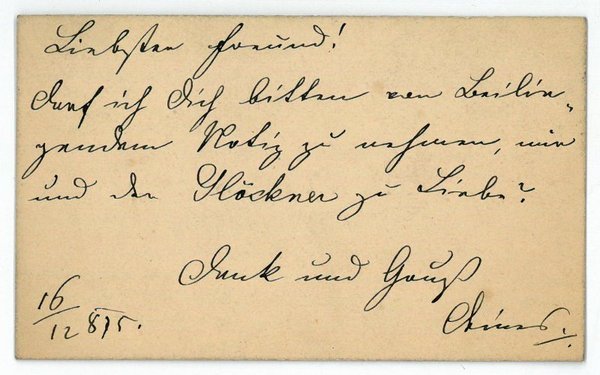 Liebster Freund!
Darf ich Dich bitten von Beilie-
gendem Notiz zu nehmen, mir
und der Glöckner zu Liebe?
Dank und Gruß
16/12 875.